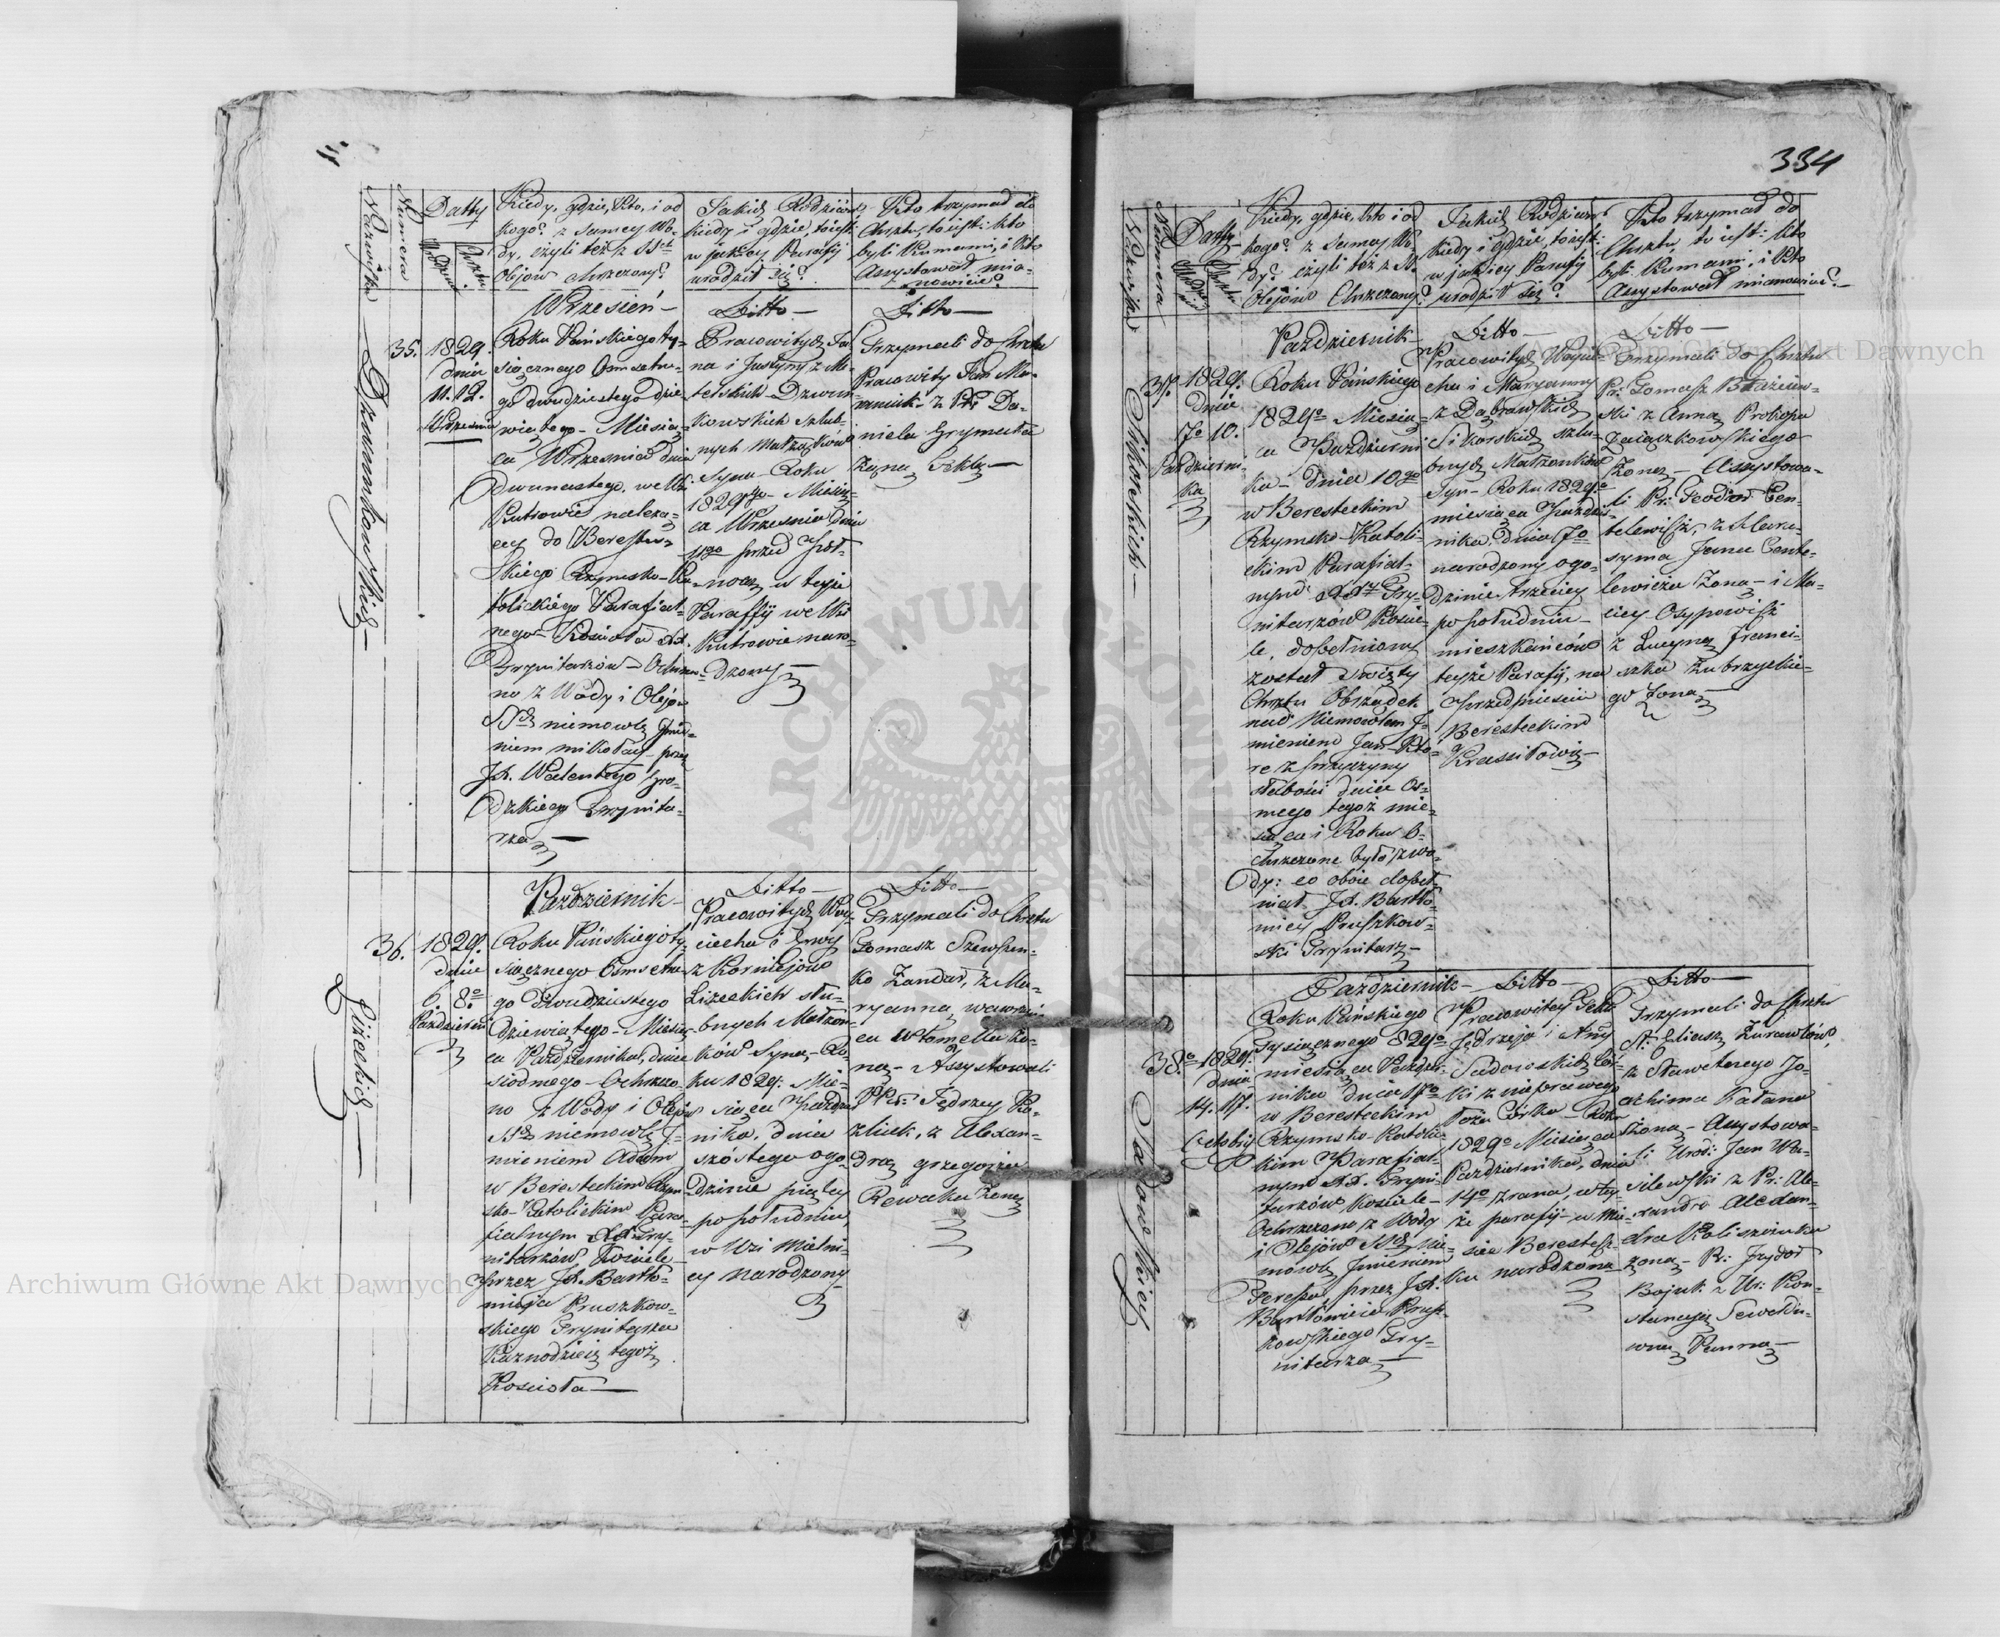 334
Nazwiska
Numera
Datty
Urodzenia
Chrztu
Kiedy, gdzie, Kto, i od
kogo? z Samey Wo-
dy, czyli też z SSch
Olejów chrzczony?
Jakich Rodziców
kiedy i gdzie, to iest:
w jakiey Parafij
urodził się?
Kto trzymał do
Chrztu, to iest: kto
byli Kumami, i Kto
Assystował mia-
nowicie?
Dzwonnkowskich
35.
1829.
dnia
11. 12.
Września
Wrzesień
Roku Pańskiego ty-
siącznego Ośmsetne-
go dwudziestego dzie-
wiątego - Miesią-
ca Września dnia
Dwunastego, we Wsi
Kutrowie należą-
cey do Berestec-
kiego Rzymsko-Ka-
tolickiego Parafial-
nego Kościoła XX.
Trynitarzów - Ochrzczo-
no z Wody i Olejów
SSch niemowlę Jmie-
niem Mikołay - przez
JX. Walentego Gro-
dzkiego Trynita-
rza
Ditto
Pracowitych Ja-
na i Justyny z
Dzwon-
kowskich Szlub-
nych Małżąków
Syna - Roku
1829go - Miesią-
ca Września dnia
11go przed Pół-
nocą w teyże
Paraffij we Wsi
Kutrowie naro-
dzony
Ditto
Trzymali do Chrztu
Pracowity Jan
z Pr: Da-
niela Grymata
Żoną Teklą
Lizeckich
36.
1829.
dnia
6. 8o
Październi
Październik
Roku Pańskiego ty-
siącznego Ośmsetne-
go dwudziestego
dziewiątego - Miesią-
ca Października, dnia
siodmego - Ochrzczo-
no z Wody i Olejów
SSch niemowlę J-
mieniem Adam
w Beresteckim Rzym-
sko-Katolickim Para-
fialnym XX. Try-
nitarzów Kościele
przez JX. Bartło-
mieja Pruszkow-
skiego Trynitarza
Kaznodzieię tegoż
Kościoła
Ditto
Pracowitych Woy-
ciecha i Ewy
z Korniejów
Lizeckich szlu-
bnych Małżon-
ków Syna - Ro-
ku 1829: Mie-
siąca Paździer-
nika, dnia
szóstego ogo-
dzinie piątey
po południu,
w Wsi Mielni-
cy narodzony
Ditto
Trzymali do Chrztu
Tomasz Szewsun-
ko Żandar, z Ma-
ryanną, wawrzin-
ca żo-
ną - Assystowali
PPr: Jędrzey Ko-
zliuk, z Alexan-
drą grzegorza
Rewaka Żoną
Nazwiska
Numera
Datty
Kiedy, gdzie, Kto i od
kogo? z Samey Wo-
dy? czyli też z SS.
Olejów Chrzczony?
Jakich Rodziców
kiedy i gdzie, to iest:
w jakiey Parafij
urodził się?
Kto trzymał do
Chrztu, to iest: kto
byli Kumami, i Kto
Assystował mianowicie?
Sikorskich
37.
1829.
dnia
7o 10.
Październi-
ka
Październik
Roku Pańskiego
1829o Miesią-
ca Październi-
ka - dnia 10go
w Beresteckim
Rzymsko-Katoli-
ckim Parafial-
nym XX. Try-
nitarzów Kościo-
le, dopełniony
został Święty
Chrztu Obrządek
nad Niemowlem J-
mieniem Jan - Któ-
re z przyczyny
słabości dnia Os-
mego tegoż mie-
siąca i Roku o-
chrzczone było z wo-
dy: co oboie dopeł-
niał JX. Bartło-
miey Pruszkow-
ski Trynitarz
Ditto
Pracowitych Woycie-
cha i Maryanny
z Dąbrowskich
Sikorskich szlu-
bnych Małżonków
Syn - Roku 1829o
miesiąca Paździer-
nika dnia 7o
narodzony ogo-
dzinie trzeciey
po południu
mieszkańców
teyże Parafij, na
Przedmieściu
Beresteckim
Ditto
Trzymali do Chrztu
Pr: Tomasz Błażiew-
ski z Anną Prokopa
Zaiączkowskiego
Żoną - Assystowa-
li Pr: Teodor Cen-
telewicz, z
Jana Cente-
lewicza Żona - i Ma-
ciey Osypowicz
z Lucyną Franci-
szka Zubrzyckie-
go żoną
Sadowskiey
38o
1829.
dnia
14. 17.
Octobris
Październik
Roku Pańskiego
Tysiącznego 829o
miesiąca Paździer-
nika dnia 17o
w Beresteckim
Rzymsko-Katolic-
kim Parafial-
nym XX. Tryni-
tarzów Kościele
Ochrzczono z Wody
i Olejów SSch nie-
mowlę Jmieniem
Teressa, przez JX.
Bartłomieia Prusz-
kowskiego Try-
nitarza
Ditto
Jędrzeja i Anny
Sadowskich
z nieprawego
łoża Córka - Roku
1829o Miesiąca
Października, dnia
14o zrana, w tey-
że parafij - w Mie-
ście Beresteczku
narodzona
Ditto
Trzymali do Chrztu
z Jo-
achima Kałana
żoną - Assystowa-
li Urod: Jan Wa-
silewski z Pr: Ale-
xandrą Alexan-
dra
żoną - Pr: Jzydor
Bojuk z Ur: Kon-
stancyą
wną Panną
Archiwum Główne Akt Dawnych
Archiwum Główne Akt Dawnych